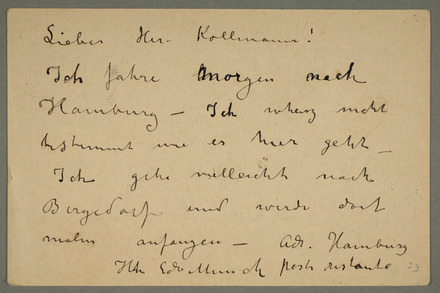 Lieber Herr Kollmann!
Ich fahre Morgen nach
Hamburg – Ich weiss nicht
bestimmt wie es hier geht –
Ich gehe vielleicht nach
Bergedorf und werde dort
malen anfangen – Adr. Hamburg
Edv. Munch poste restante